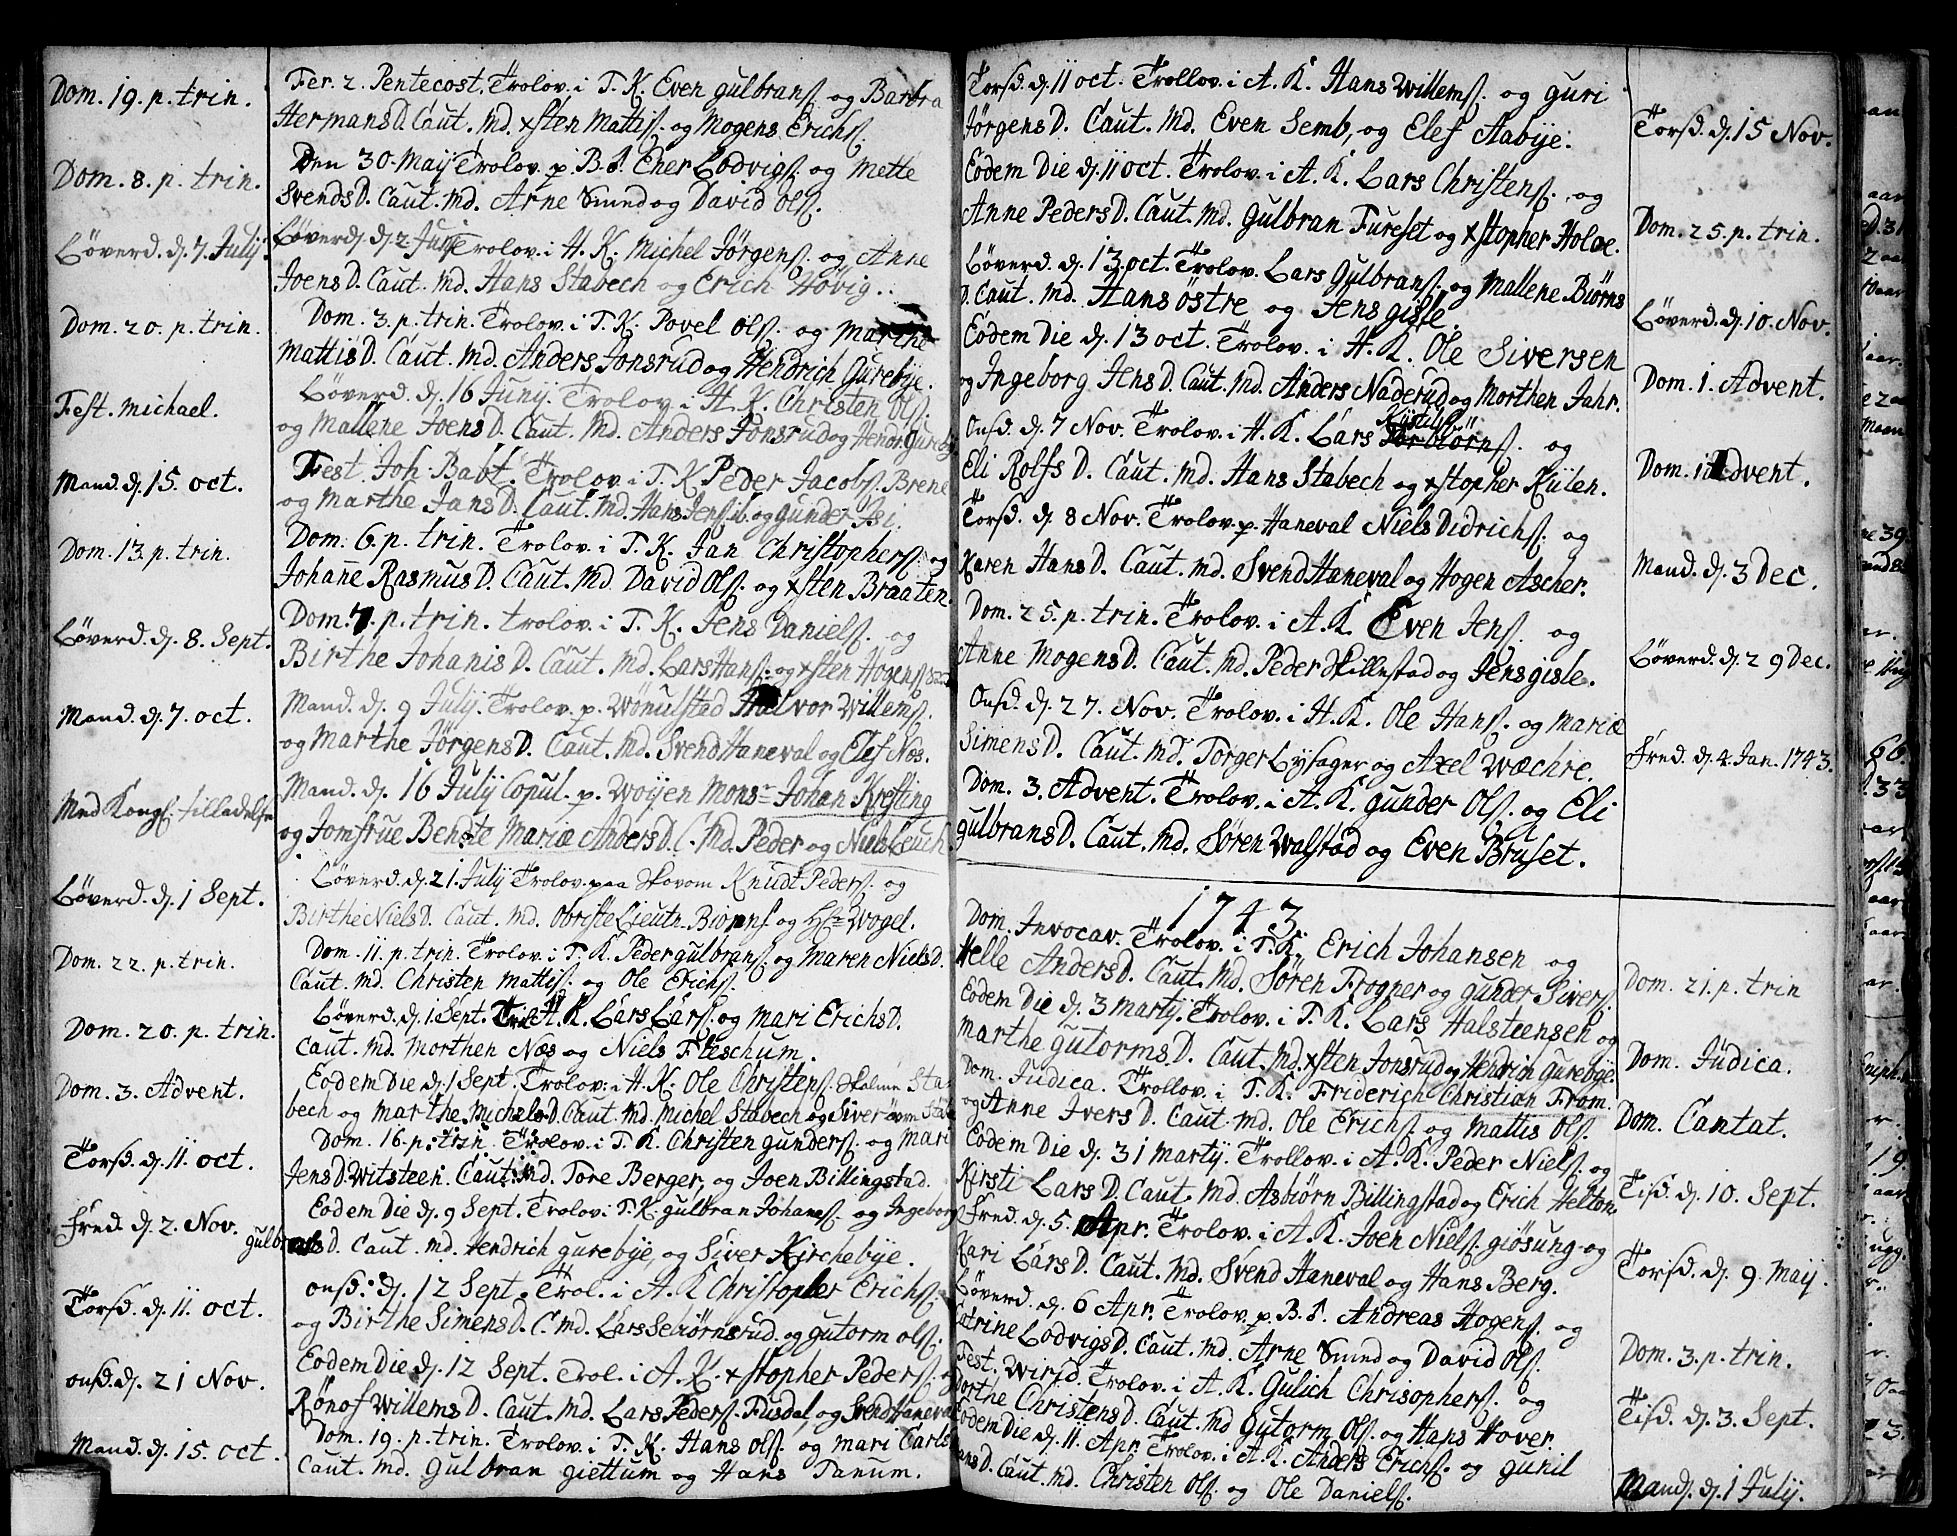 Dom. 19. p. trin.
Dom. 8. p. trin.
Löverd. d. 7 Julij
Dom. 20. p. trin.
Fest. michael.
Mand. d. 15. oct.
Dom. 13. p. trin.
Löverd. d. 8. Sept.
Mand. d. 7. oct.
Med Kongl. tilladelse
Löverd. d. 1 Sept.
Dom. 22. p. trin.
Dom. 20. p. trin.
Dom. 3. Advent.
Torsd. d. 11. oct.
Fred. d. 2. Nov.
Torsd. d. 11. oct.
onsd. d. 21 Nov.
Mand. d. 15. oct.
Fer. 2. Pentecost. Trolov. i T. K. Even gulbrans. og Barbra
Hermans D. Caut. Md. xsten Mattis. og Mogens Erichs.
Den 30. Maij Trolov. p. B. S. Ener Lodvigs. og Mette
Svends D. Caut. Md. Arne Smed og David Ols.
Löverd. d. 2 Junij Trolov. i H. K. Michel Jörgens. og Anne
Joens D. Caut. Md. Hans Stabech og Erich Hövig.
Dom. 3. p. trin. Trolov. i T. K. Povel Ols. og Marthe
Mattis D. Caut. Md. Anders Jonsrud og Hendrich Gurebye.
Löverd. d. 16 Junij. Trolov. i H. K. Christen Ols.
og Mallene Joens D. Caut. Md. Anders Jonsrud og Hendr. Gureby
Fest. Joh. Babt. Trolov. i T. K. Peder Jacobs. Brene
og Marthe Jans D. Caut. Md. Hans Jens. og Gunder Bi.
Dom. 6. p. trin. Trolov. i T. K. Jan Christophers. og
Johanne Rasmus D. Caut. Md. David Ols. og xsten Braaten.
Dom. 7. p. trin. trolov. i T. K. Jens Daniels. og
Birthe Johanis D. Caut. Md. Lars Hans. og xsten Hogens
Mand. d. 9 Julij. Trolov. p. Wönulstad Halvor Willems.
og Marthe Jörgens D. Caut. Md. Svend Haneval og Elef Nös.
Mand. d. 16 Julij Copul. p. Woijen Monsr Johan Krefting
og Jomfrue Bendte Mariæ Anders D. C. Md. Peder og Niels Leuch.
Löverd. d. 21. Julij Trolov. paa Skovom Knudt Peders. og
Birthe Niels D. Caut. Md. Obriste Lieutn. Biörns. og Hr Wogel.
Dom. 11. p. trin. Trolov. i T. K. Peder gulbrans. og Maren Niels D.
Caut. Md. Christen Mattis. og Ole Erichs.
Löverd. d. 1. Sept. Tr. i A. K. Lars Lars. og Mari Erichs D.
Caut. Md. Morthen Næs og Niels Fleschum.
Eodem Die d. 1 Sept. Trolov. i H. K. Ole Christens. Skolmn Sta-
bech og Marthe Michels D. Caut. Md. Michel Stabech og Siver öwre Stab
Dom. 16. p. trin. Trolov. i T. K. Christen Gunders. og Mari
Jens D. Witsteen. Caut. Md. Tore Berger, og Joen Billingstad.
Eodem Die d. 9 Sept. Trolov. i T. K. gulbran Johanes. og Ingeborg
gulbrans D. Caut. Md. Hendrich gurebye, og Siver Kirchebye.
onsd. d. 12 Sept. Trol. i A. K. Christopher Erichs.
og Birthe Simens D. C. Md. Lars Sebiörnsrud. og gutorm ols.
Eodem Die d. 12 Sept. Trol. i A. K. xstopher Peders. og
Rönof Willems D. Caut. Md. Lars Peders. Fusdal, og Svend Haneval
Dom. 19. p. trin. Trolov. i T. K. Hans Ols. og Mari Carls
Caut. Md. Gulbran giettum og Hans Tanum.
Torsd. d. 11 oct. Trollov. i A. K. Hans Willems. og guri
Jörgens D. Caut. Md. Even Semb, og Elef Aabije.
Eodem Die d. 11 oct. Trolov. i A. K. Lars Christens. og
Anne Peders D. Caut. Md. Gulbran Fureset og xstopher Holoe.
Löverd. d. 13. oct. Trolov. Lars Gulbrans. og Mallene Biörns
D. Caut. Md. Hans östre og Jens gisle.
Eodem Die d. 13 oct. Trolov. i H. K. Ole Siversen
og Ingeborg Jens D. Caut. Md. Anders Naderud og Morthen Jahr.
Onsd. d. 7 Nov. Trolov. i H. K. Lars Torbiörns. og
Eli Rolfs D. Caut. Md. Hans Stabech og xstopher Kiilen.
Torsd. d. 8 Nov. Trolov. p. Haneval Niels Didrichs. og
Karen Hans D. Caut. Md. Svend Haneval og Hogen Ascher.
Dom. 25. p. trin. Trolov. i A. K. Even Jens. og
Anne Mogens D. Caut. Md. Peder Skillestad og Jens gisle.
Onsd. d. 27. Nov. Trolov. i H. K. Ole Hans. og Mariæ
Simens D. Caut. Md. Torger Lysager og Axel Wæchre.
Dom. 3. Advent. Trolov. i A. K. gunder Ols. og Eli
gulbrans D. Caut. Md. Sören Walstad og Even Bruset.
1743.
Dom. Invocav. Trolov. i T. K. Erich Johansen og
Helle Anders D. Caut. Md. Sören Frogner og gunder Sivers.
Eodem Die d. 3 Martij. Trolov. i T. K. Lars Halsteensen og
Marthe gutorms D. Caut. Md. xsten Jonsrud og Hendrich Gurebye.
Dom. Judica. Trollov. i T. K. Friderich Christian From.
og Anne Ivers D. Caut. Md. Ole Erichs. og Mattis Ols.
Eodem Die d. 31 Martij. Trollov. i A. K. Peder Niels. og
Kirsti Lars D. Caut. Md. Asbiörn Billingstad og Erich Helton.
Fred. d. 5. Apr. Trolov. i A. K. Joen Niels. giösung og
Kari Lars D. Caut. Md. Svend Haneval og Hans Berg.
Löverd. d. 6 Apr. Trolov. p. B. S. Andreas Hogens. og
Catrine Lodvigs D. Caut. Md. Arne Smed og David Ols.
Fest. Wirid. Trolov. i A. K. Gulich Chrisophers. og
Dorthe Christens D. Caut. Md. Gutorm Ols. og Hans Hover.
Eodem Die d. 11. Apr. Trolov. i A. K. Anders Erichs. og gunil
Hans D. Caut. Md. Christen Ols. og Ole Daniels.
Torsd. d. 15 Nov.
Dom. 25. p. trin.
Löverd. d. 10. Nov.
Dom. 1. Advent.
Dom. 1 Advent.
Mand. d. 3 Dec.
Löverd. d. 29 Dec.
Fred. d. 4. Jan. 1743.
Dom. 21. p. trin
Dom. Judica.
Dom. Cantat.
Tisd. d. 10. Sept.
Torsd. d. 9. Maij.
Dom. 3. p. trin.
Tisd. d. 3. Sept.
Mand. d. 1 Julij.